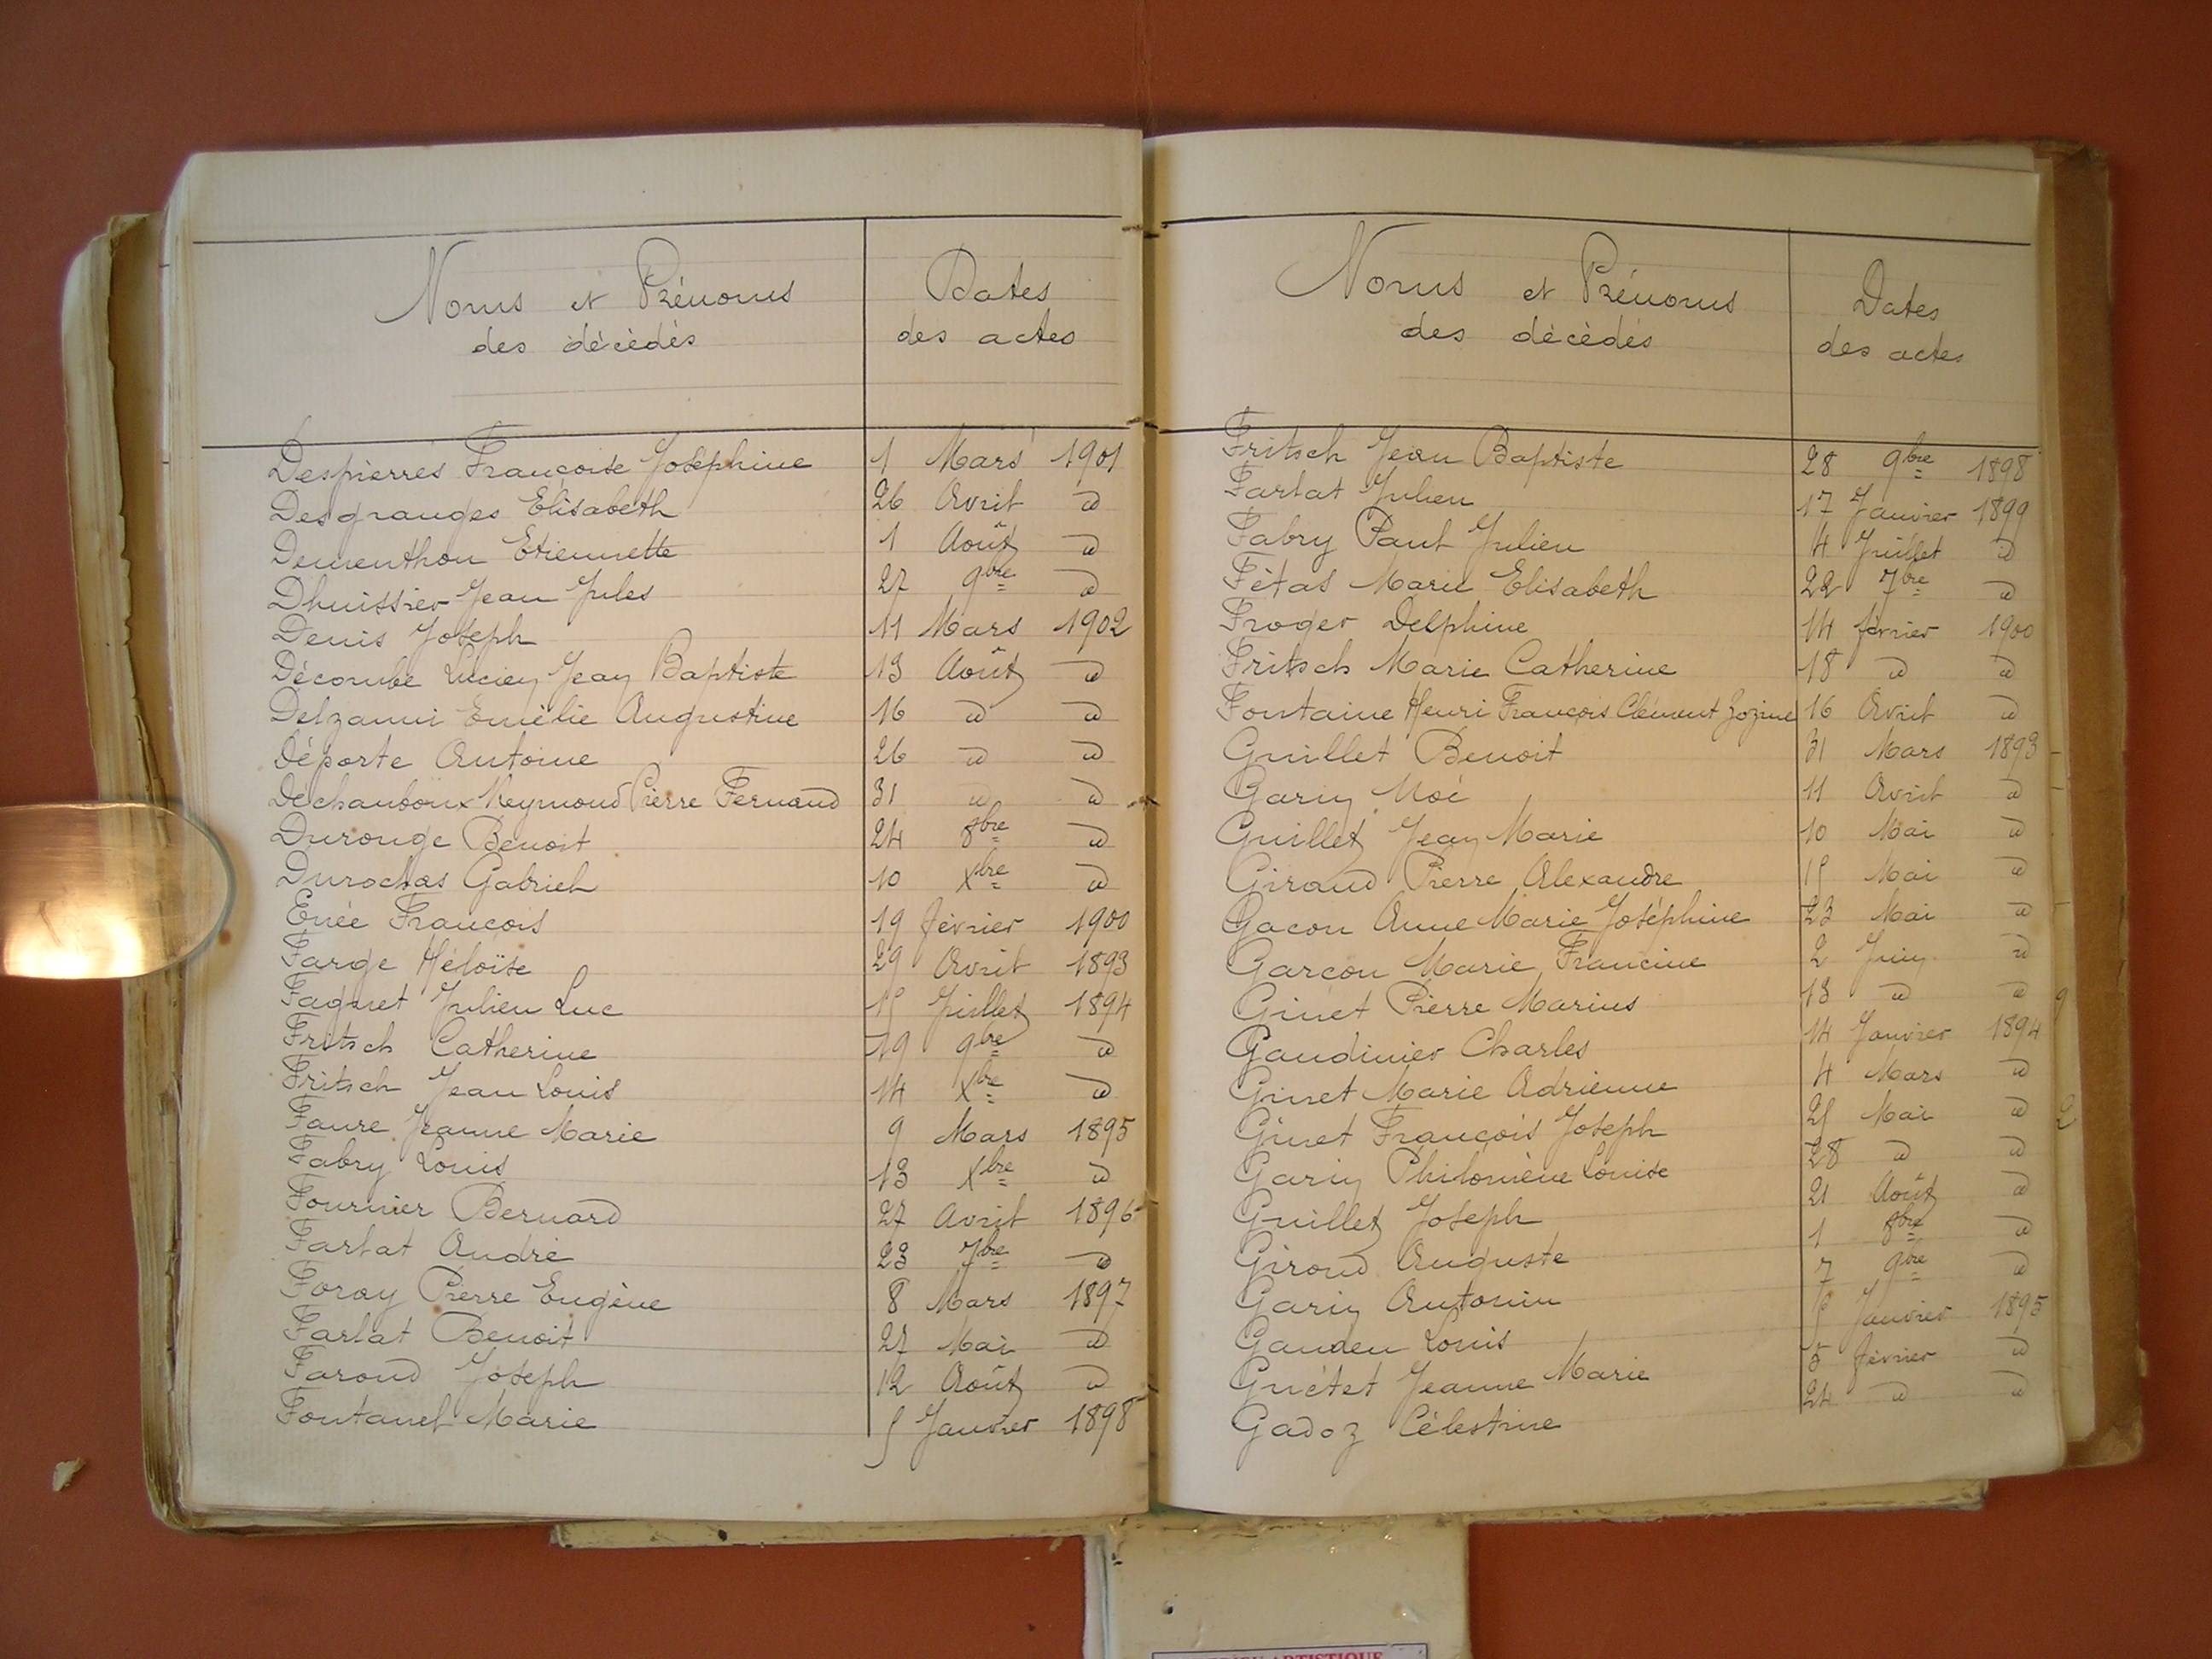 Noms et Prénoms
des décédés
Dates
des actes
Despierres Françoise Joséphine 1 Mars 1901
Desgranges Elisabeth 26 Avril d
Dementhon Etiennette 1 Août d
Dhuissier Jean Jules 27 9bre d
Denis Joseph 11 Mars 1902
Décombe Lucien Jean Baptiste 13 Août d
Delzanni Emélie Augustine 16 d d
Déporte Antoine 26 d d
Reymond Pierre Fernand 31 d d
Durouge Benoit 24 8bre d
Durochas Gabriel 10 Xbre d
Enée François 19 février 1900
Farge Héloïse 29 Avril 1893
Faguet Julien Luc 15 Juillet 1894
Fritsch Catherine 19 9bre d
Fritsch Jean Louis 14 Xbre d
Faure Jeanne Marie 9 Mars 1895
Fabry Louis 13 Xbre d
Fournier Bernard 27 Avril 1896
Farlat André 23 7bre d
Foray Pierre Eugène 8 Mars 1897
Farlat Benoit 27 Mai d
Faroud Joseph 12 Août d
Fontanel Marie 5 Janvier 1898
Noms et Prénoms
des décédés
Dates
des actes
Fritsch Jean Baptiste 28 9bre 1898
Farlat Julien 17 Janvier 1899
Fabry Paul Julien 4 Juillet d
Fétas Marie Elisabeth 22 7bre d
Froger Delphine 14 février 1900
Fritsch Marie Catherine 18 d d
Fontaine Henri François Clément Zozime 16 Avril d
Guillet Benoit 31 Mars 1893
Garin Moé 11 Avril d
Guillet Jean Marie 10 Mai d
Giraud Pierre Alexandre 15 Mai d
Gacon Anne Marie Joséphine 23 Mai d
Garcon Marie Francine 2 Juin d
Ginet Pierre Marius 13 d d
Gaudinier Charles 14 Janvier 1894
Ginet Marie Adrienne 4 Mars d
Ginet François Joseph 25 Mai d
Garin Philomène Louise 28 d d
Guillet Joseph 21 Août d
Giroud Auguste 1 8bre d
Garin Antonin 7 9bre d
Gauden Louis 5 Janvier 1895
Guétet Jeanne Marie 5 février d
Gadoz Célestine 24 d d